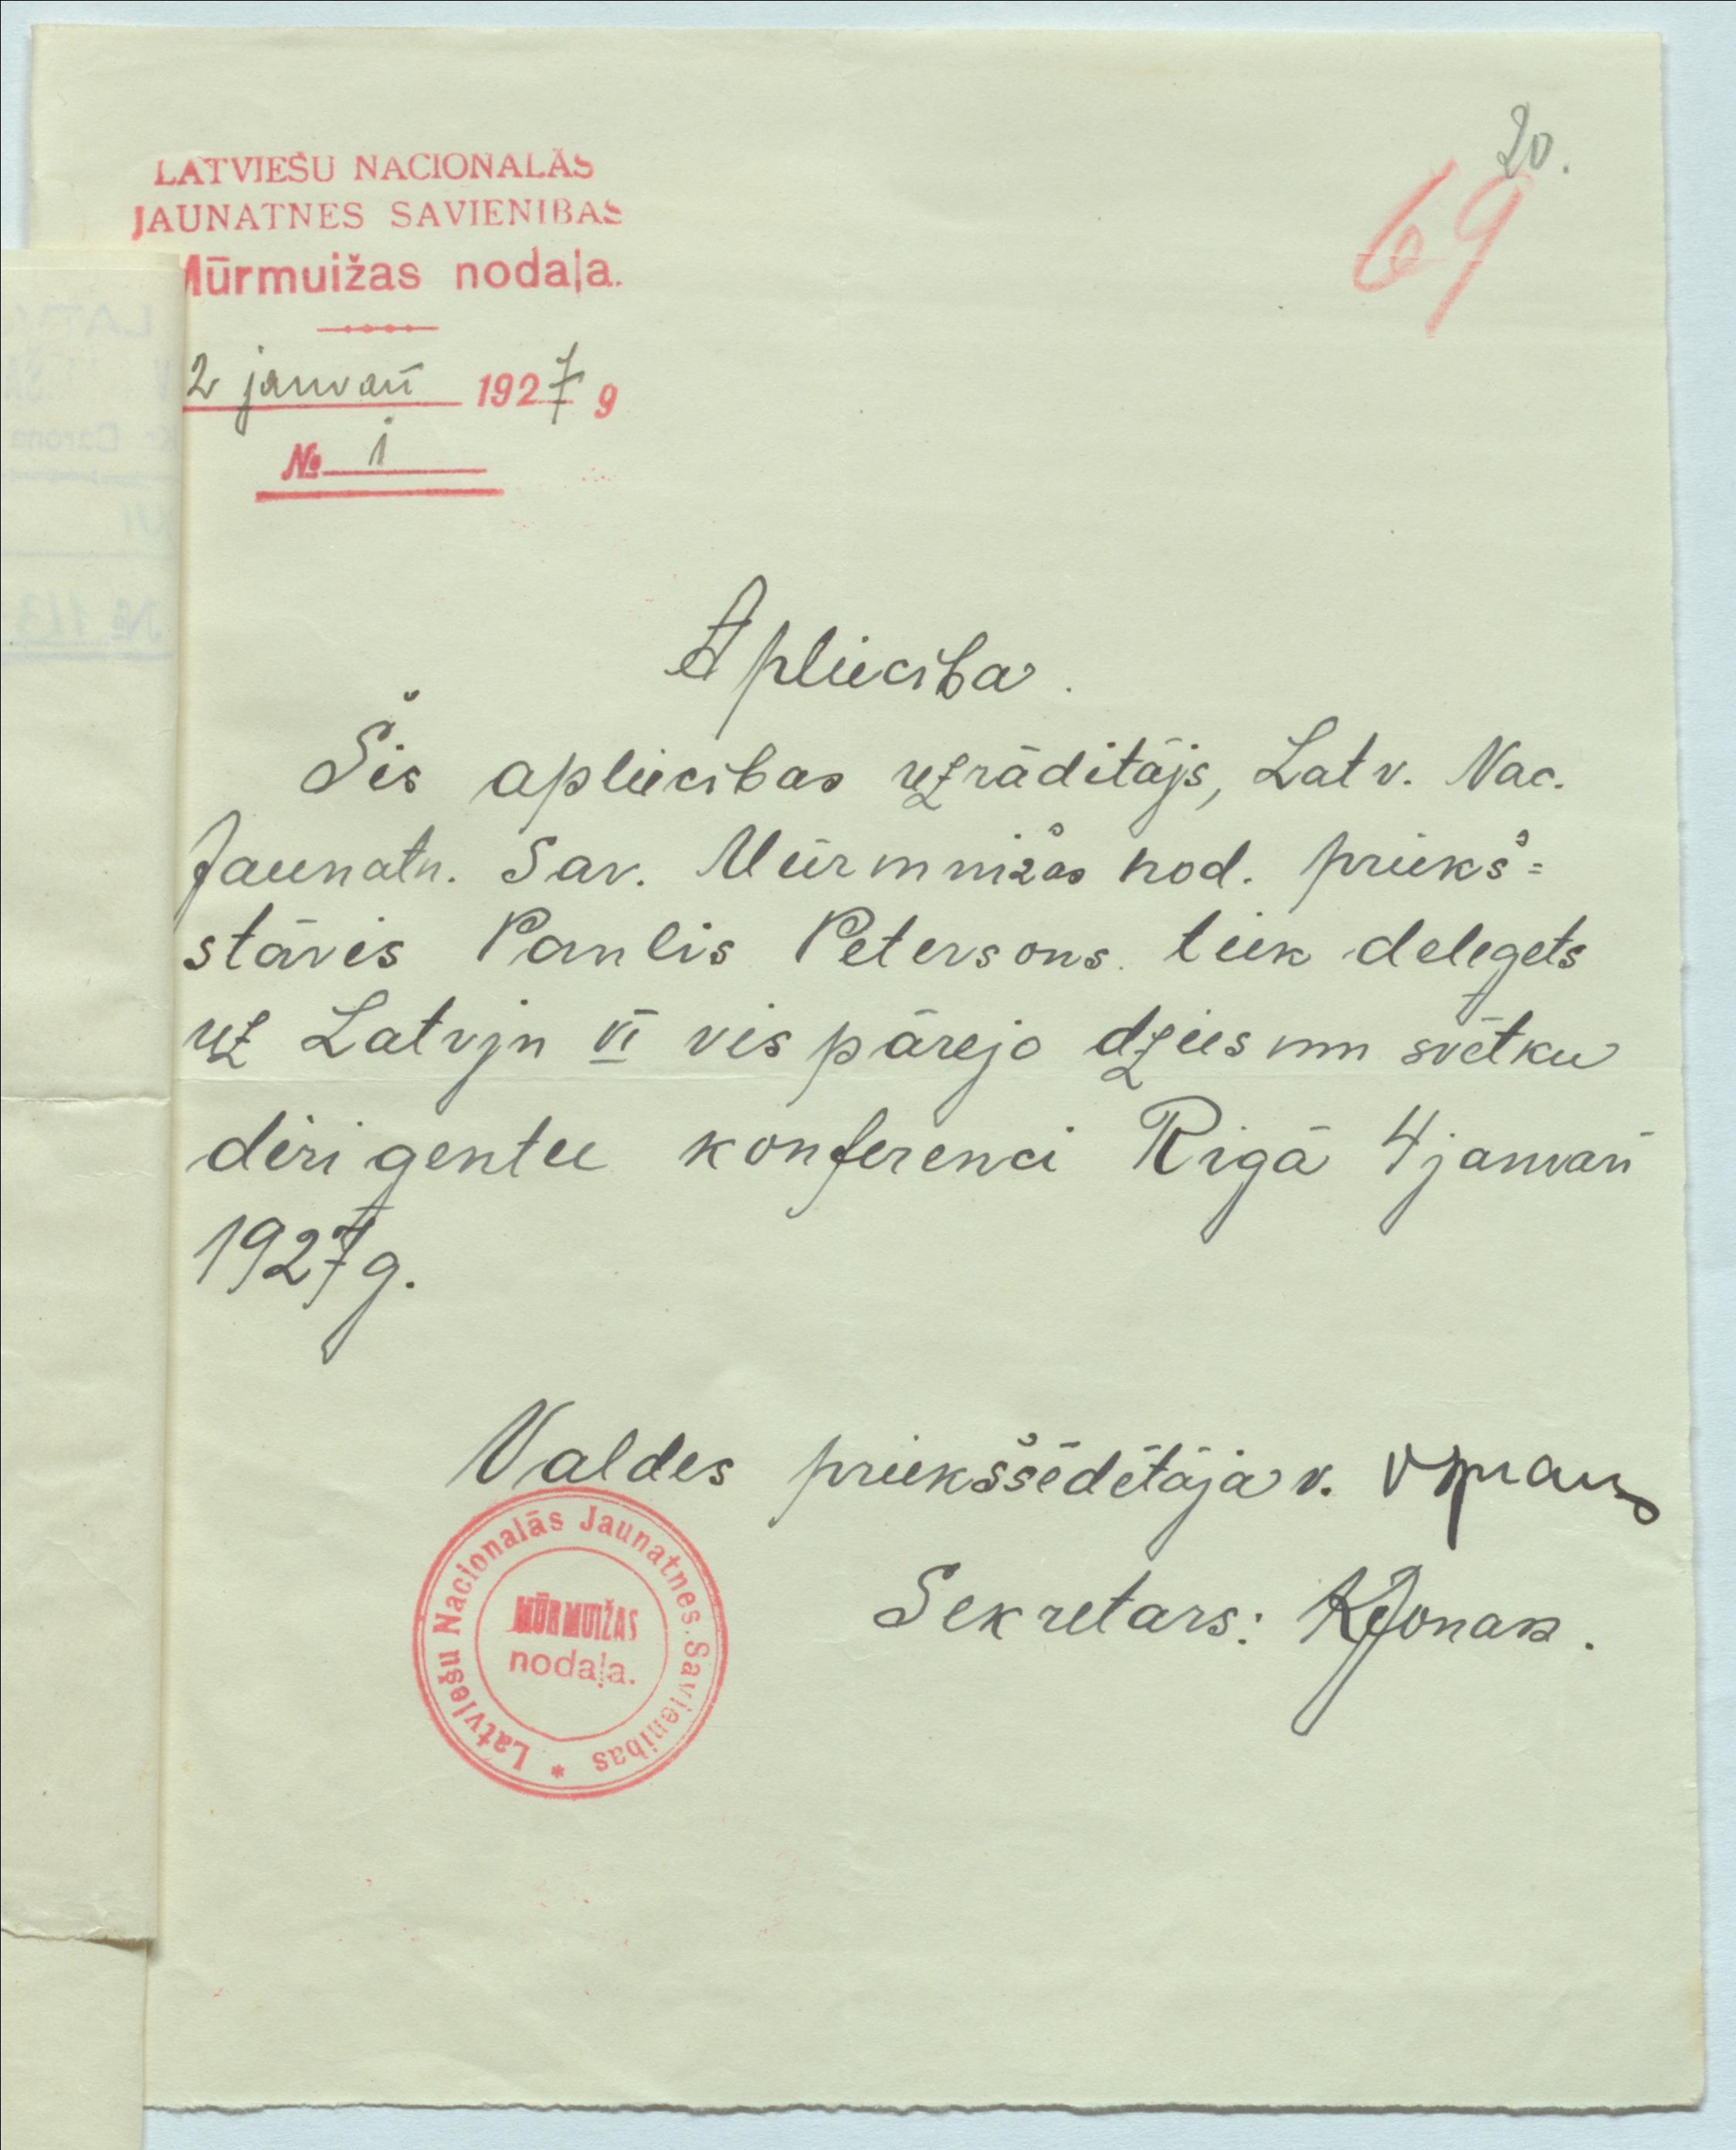 20.
69
LATVIEŠU NACIONALĀS
JAUNATNES SAVIENIBAS
Mūrmuižas nodaļa.
2 janvarī 1927 g
№ 1
Apliecība.
Šis apliecības uzrāditājs, Latv. Nac.
Jaunatn. Sav. Mūrmuižas nod. priekš=
stāvis Paulis Petersons. tiek delegets
uz Latvju VI vispārejo dziesmu svētku
dirigentu konferenci Rigā 4 janvarī
1927 g.
Valdes priekšsēdētāja v.
Sekretars: KJonass.
Latviešu Nacionalās Jaunatnes Savienibas *
MŪRMUIŽAS
nodaļa.